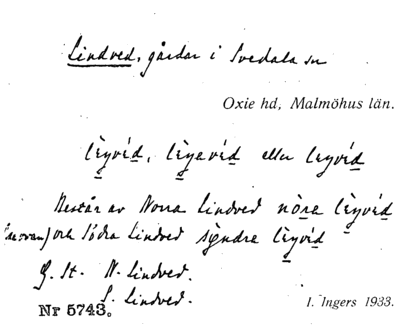 Lindved, gårdar i Svedala sn
Oxie hd, Malmöhus län.
lèyvéd, lèyavéd eller leyvéd
Består av Norra Lindved nòra lèyvéd
och Södra Lindved sỳndre lèyvéd
G. St. N. Lindved.
S. Lindved.
Nr 5743.
I. Ingers 1933.